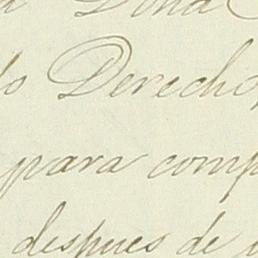 Dona
lo Derecho,
para comp
despues de